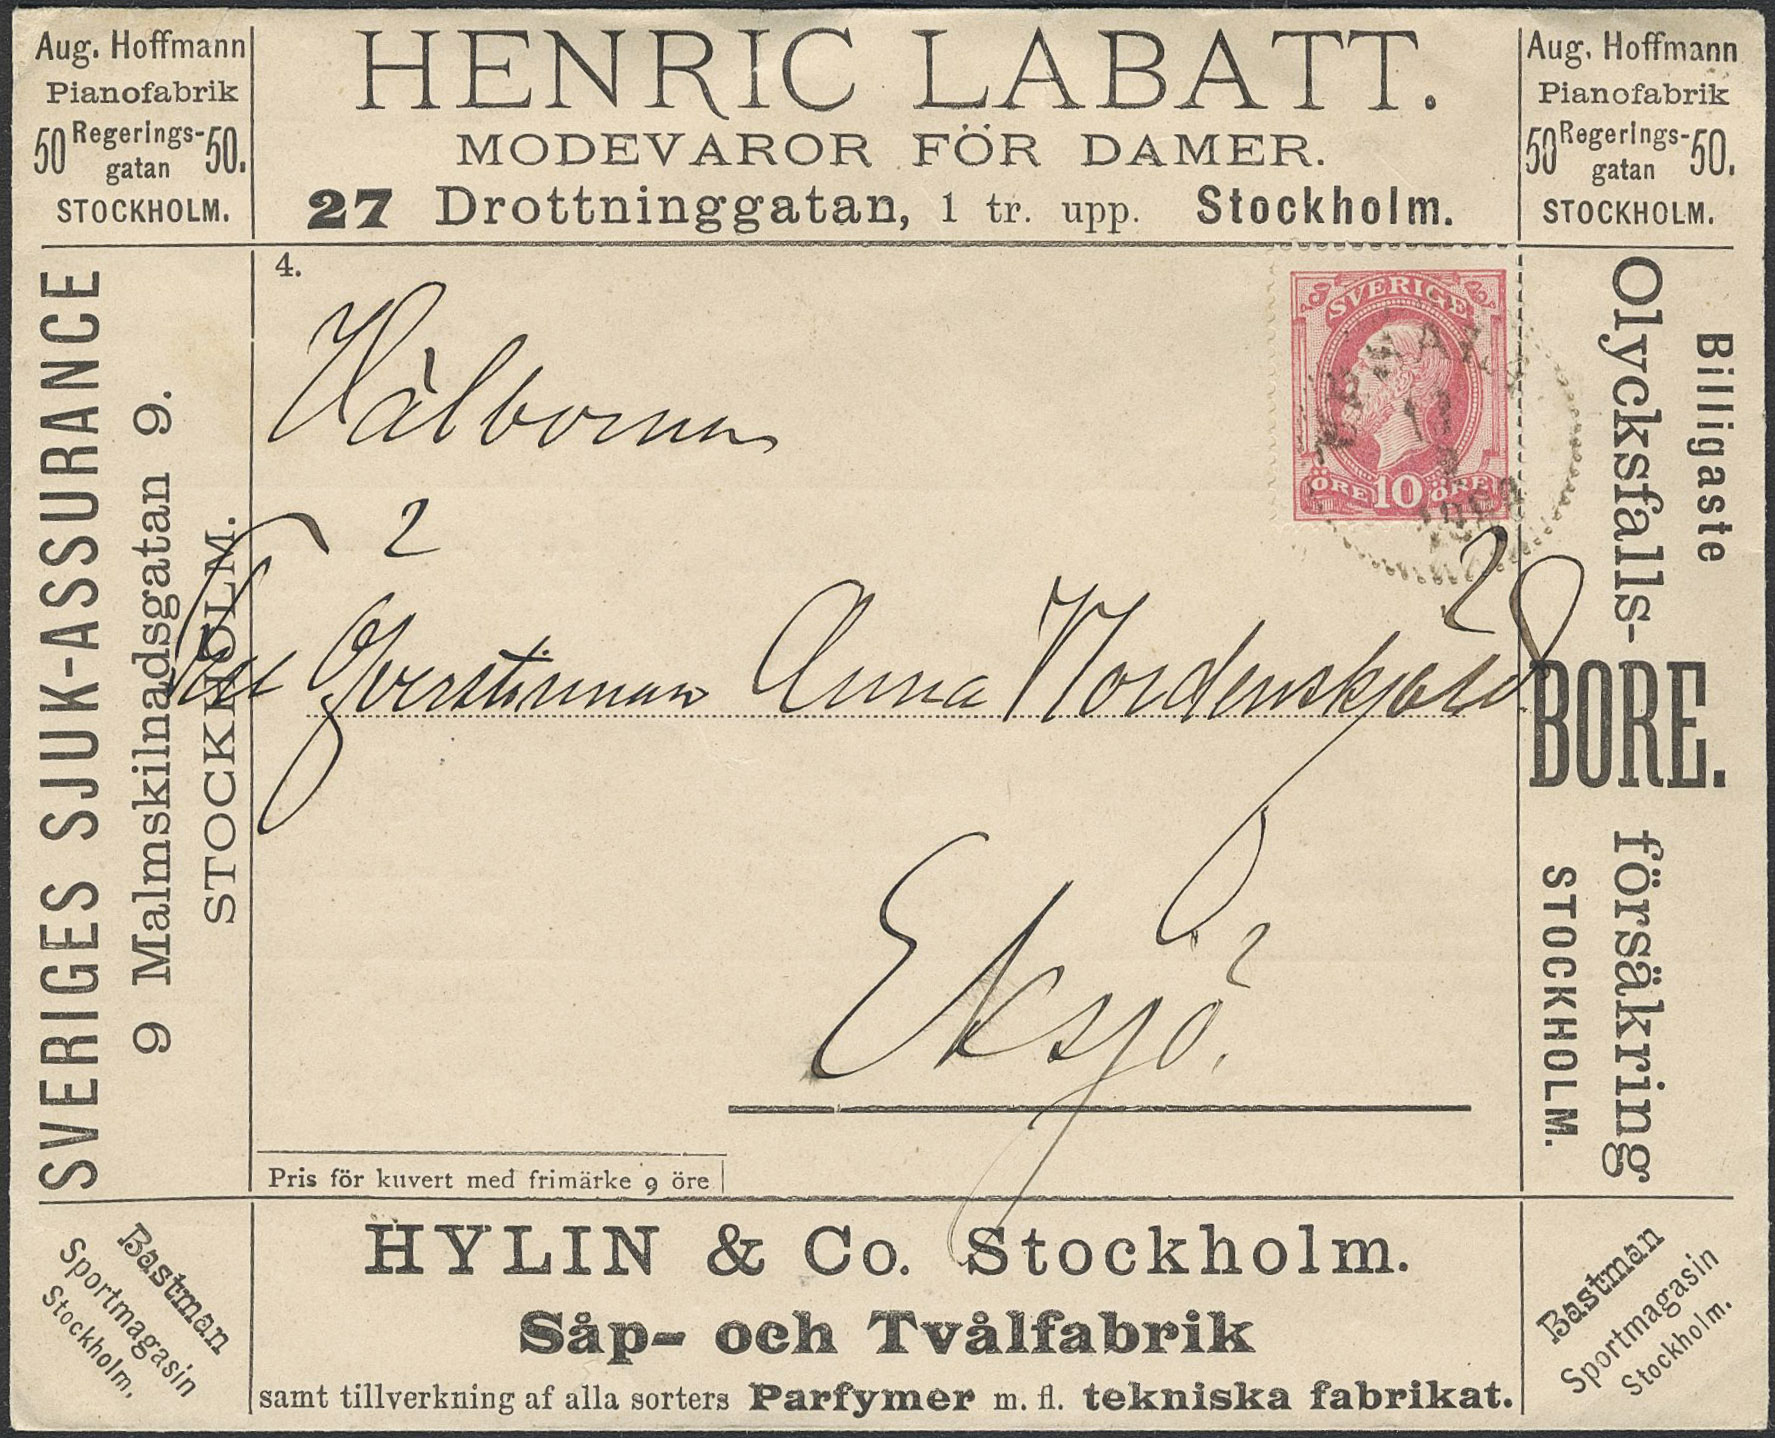 Aug. Hoffmann
Pianofabrik
50 Regerings-gatan 50.
STOCKHOLM.
HENRIC LABATT.
MODEVAROR FÖR DAMER.
27 Drottninggatan, 1 tr. upp. Stockholm.
Aug. Hoffmann
Pianofabrik
50 Regerings-gatan 50.
STOCKHOLM.
SVERIGES SJUK-ASSURANCE
9 Malmskilnadsgatan 9.
STOCKHOLM.
4.
SVERIGE
ÖRE 10 ÖRE
Välborna
Anna Nordenskjöld
Eksjö.
Billigaste
Olycksfalls-
BORE.
försäkring
STOCKHOLM.
Pris för kuvert med frimärke 9 öre
Bastman
Sportmagasin
Stockholm.
HYLIN & Co. Stockholm.
Såp- och Tvålfabrik
samt tillverkning af alla sorters Parfymer m. fl. tekniska fabrikat.
Bastman
Sportmagasin
Stockholm.